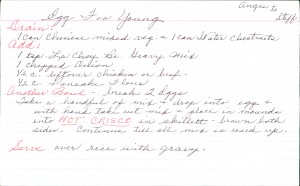 Angie's
Egg Foo Young
Drain:
1 Can Chinese mixed veg & 1 Can Water Chestnuts
Add:
1 tsp La Choy Br. Gravy Mix
1 chopped Onion
1/2 c. leftover chicken or beef.
1/2 c. Pancake Flour
Another Bowl - break 2 eggs
Take a handful of mix & drop into egg &
with hand take out mix & place in mounds
into HOT CRISCO in skillett - brown both
sides. Continue till all mix is used up.
Serve over rice with gravy.